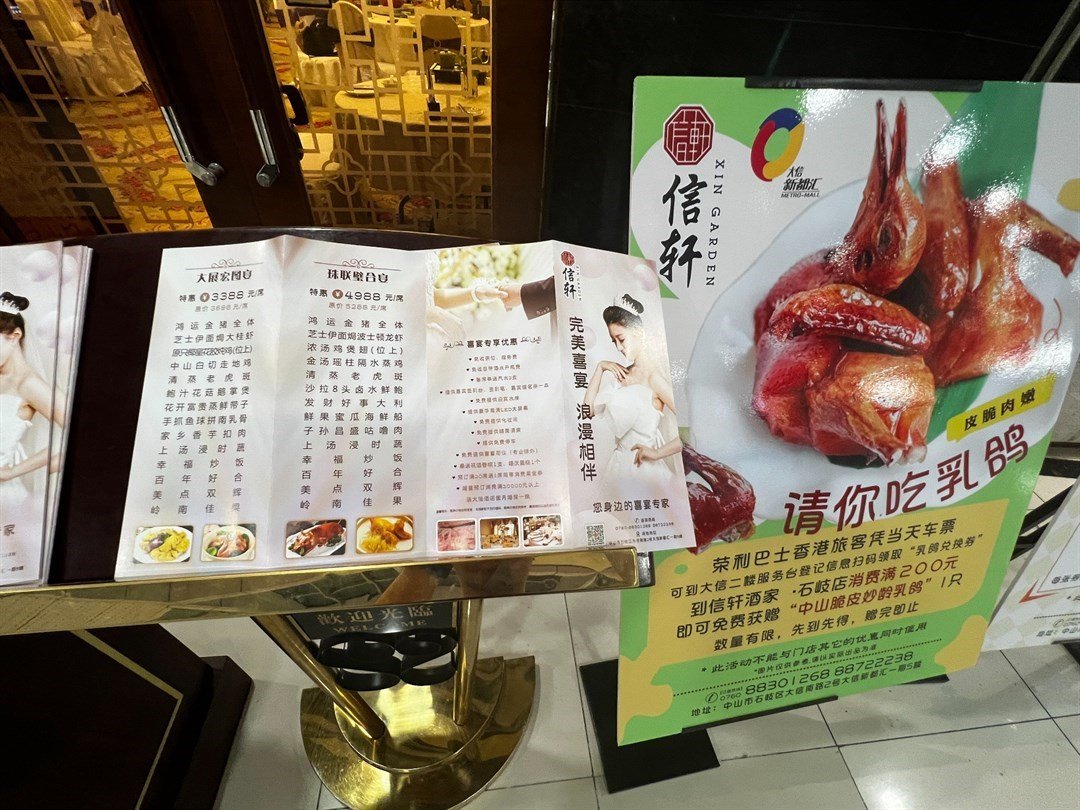 大展宏图宴
特惠 ¥3388 元/席
原价 3698 元/席
鸿运金猪全体
芝士伊面焗大桂虾
中山白切走地鸡
清蒸老虎斑
鲍汁花菇鹅掌煲
花开富贵蒸鲜带子
手抓鱼球拼南乳骨
家乡香芋扣肉
上汤浸时蔬
幸福炒饭
百年好合
美点双辉
岭南佳果
珠联璧合宴
特惠 ¥4988 元/席
原价 5288 元/席
鸿运金猪全体
芝士伊面焗波士顿龙虾
浓汤鸡煲翅(位上)
金汤瑶柱隔水蒸鸡
清蒸老虎斑
沙拉8头卤水鲜鲍
发财好事大利
鲜果蜜瓜海鲜船
子孙昌盛咕噜肉
上汤浸时蔬
幸福炒饭
百年好合
美点双辉
岭南佳果
喜宴专享优惠
免费提供化妆间
免费提供停车
信轩
完美喜宴 浪漫相伴
您身边的喜宴专家
歡迎光臨
WELCOME
家
信轩
信轩
XIN GARDEN
大信
新都汇
METRO-MALL
皮脆肉嫩
请你吃乳鸽
荣利巴士香港旅客凭当天车票
可到大信二楼服务台登记信息扫码领取“乳鸽兑换券”
到信轩酒家·石岐店消费满200元
即可免费获赠“中山脆皮妙龄乳鸽”1只
数量有限，先到先得，赠完即止
*此活动不能与门店其它的优惠同时使用
*图片仅供参考,请以实际出品为准
0760 88301268 88722238
地址：中山市石岐区大信南路2号大信新都汇一期5楼